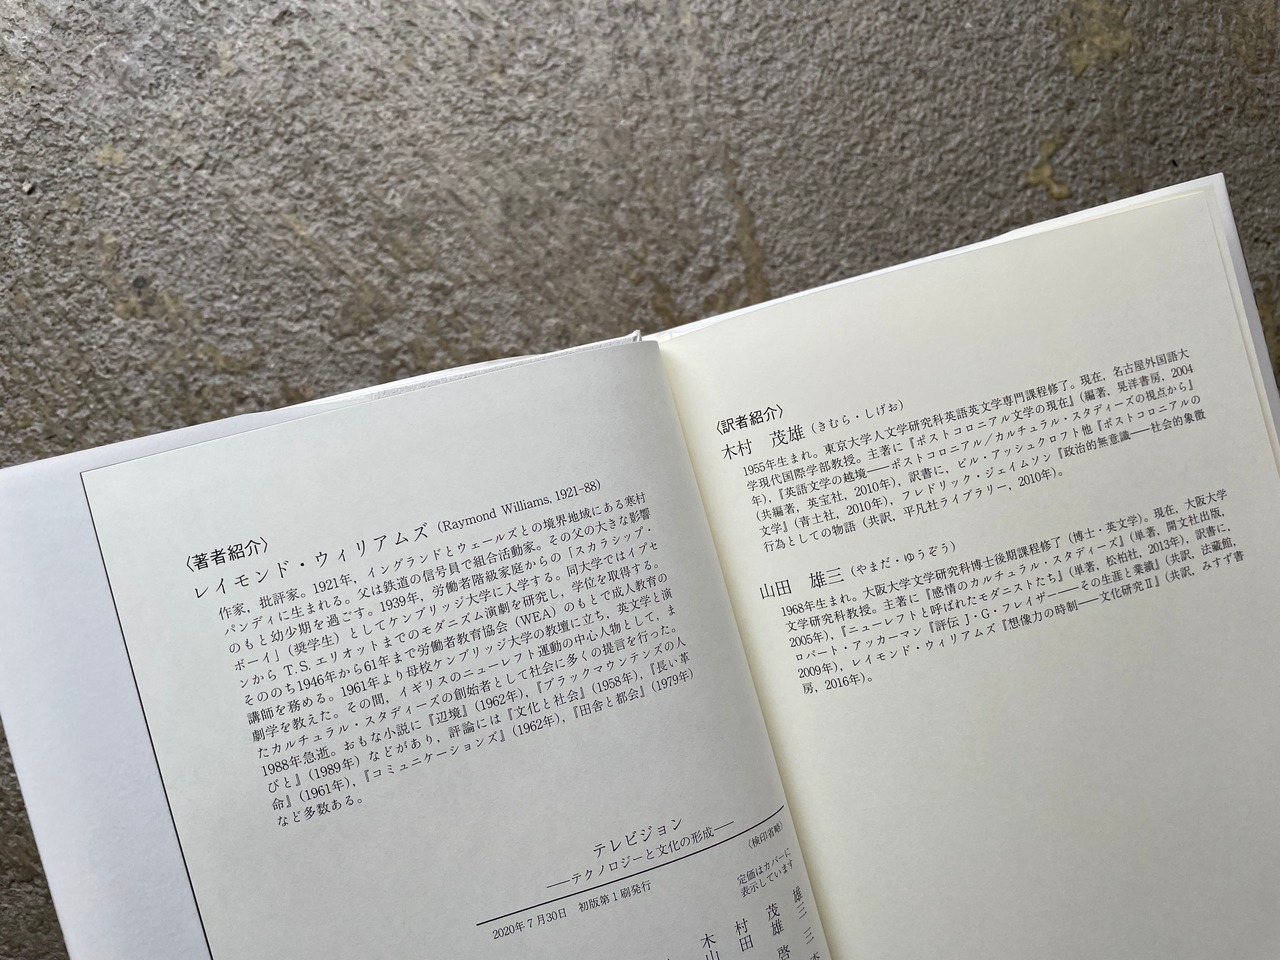 〈著者紹介〉
レイモンド・ウィリアムズ（Raymond Williams, 1921-88）
作家，批評家。1921年，イングランドとウェールズとの境界地域にある寒村
パンディに生まれる。父は鉄道の信号員で組合活動家。その父の大きな影響
のもと幼少期を過ごす。1939年，労働者階級家庭からの「スカラシップ・
ボーイ」（奨学生）としてケンブリッジ大学に入学する。同大学ではイプセ
ンから T.S.エリオットまでのモダニズム演劇を研究し，学位を取得する。
そののち1946年から61年まで労働者教育協会（WEA）のもとで成人教育の
講師を務める。1961年より母校ケンブリッジ大学の教壇に立ち，英文学と演
劇学を教えた。その間，イギリスのニューレフト運動の中心人物として，ま
たカルチュラル・スタディーズの創始者として社会に多くの提言を行った。
1988年急逝。おもな小説に『辺境』（1962年），『ブラックマウンテンズの人
びと』（1989年）などがあり，評論には『文化と社会』（1958年），『長い革
命』（1961年），『コミュニケーションズ』（1962年），『田舎と都会』（1979年）
など多数ある。
テレビジョン
――テクノロジーと文化の形成――
2020年7月30日　初版第1刷発行
（検印省略）
定価はカバーに
表示しています
木　村　茂　雄
山　田　雄　三
啓　三
〈訳者紹介〉
木村　茂雄（きむら・しげお）
1955年生まれ。東京大学人文学研究科英語英文学専門課程修了。現在，名古屋外国語大
学現代国際学部教授。主著に『ポストコロニアル文学の現在』（編著，晃洋書房，2004
年），『英語文学の越境――ポストコロニアル／カルチュラル・スタディーズの視点から』
（共編著，英宝社，2010年），訳書に，ビル・アッシュクロフト他『ポストコロニアルの
文学』（青土社，2010年），フレドリック・ジェイムソン『政治的無意識――社会的象徴
行為としての物語（共訳，平凡社ライブラリー，2010年）。
山田　雄三（やまだ・ゆうぞう）
1968年生まれ。大阪大学文学研究科博士後期課程修了（博士・英文学）。現在，大阪大学
文学研究科教授。主著に『感情のカルチュラル・スタディーズ』（単著，開文社出版，
2005年），『ニューレフトと呼ばれたモダニストたち』（単著，松柏社，2013年），訳書に，
ロバート・アッカーマン『評伝 J・G・フレイザー――その生涯と業績』（共訳，法藏館，
2009年），レイモンド・ウィリアムズ『想像力の時制――文化研究Ⅱ』（共訳，みすず書
房，2016年）。